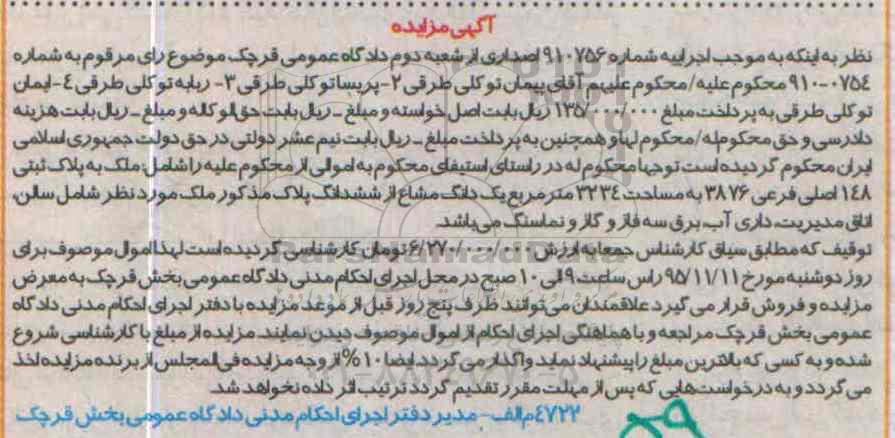 آگهی مزایده
نظر به اینکه به موجب اجراییه شماره ۹۱۰۷۵۶ اصداری از شعبه دوم دادگاه عمومی قرچک موضوع رای مرقوم به شماره
۹۱۰-۰۷۵٤ محکوم علیه/محکوم علیهم آقای پیمان توکلی طرقی ۲-پریسا توکلی طرقی ۳- ربابه توکلی طرقی ٤-ایمان
توکلی طرقی به پرداخت مبلغ ۱۳۵/۰۰۰/۰۰۰ ریال بابت اصل خواسته و مبلغ ـ ریال بابت حق الوکاله و مبلغ ـ ریال بابت هزینه
دادرسی و حق محکوم‌له/محکوم لها و همچنین به پرداخت مبلغ ـ ریال بابت نیم عشر دولتی در حق دولت جمهوری اسلامی
ایران محکوم گردیده است توجها محکوم له در راستای استیفای محکوم به اموالی از محکوم علیه را شامل: ملک به پلاک ثبتی
۱٤۸ اصلی فرعی ۳۸۷۶ به مساحت ۳۲۳٤ متر مربع یک دانگ مشاع از ششدانگ پلاک مذکور ملک مورد نظر شامل سالن،
اتاق مدیریت، داری آب، برق سه فاز و گاز و نماسنگ می‌باشد.
توقیف که مطابق سیاق کارشناس جمعا به ارزش ۶/۲۷۰/۰۰۰/۰۰۰ تومان کارشناسی گردیده است لهذا اموال موصوف برای
روز دوشنبه مورخ ۹۵/۱۱/۱۱ راس ساعت ۹ الی ۱۰ صبح در محل اجرای احکام مدنی دادگاه عمومی بخش قرچک به معرض
مزایده و فروش قرار می گیرد علاقمندان می‌توانند ظرف پنج روز قبل از موعد مزایده با دفتر اجرای احکام مدنی دادگاه
عمومی بخش قرچک مراجعه و با هماهنگی اجرای احکام از اموال موصوف دیدن نمایند. مزایده از مبلغ با کارشناسی شروع
شده و به کسی که بالاترین مبلغ را پیشنهاد نماید واگذار می گردد ایضا ۱۰% از وجه مزایده فی‌المجلس از برنده مزایده اخذ
می گردد و به درخواست‌هایی که پس از مهلت مقرر تقدیم گردد ترتیب اثر داده نخواهد شد.
٤۷۲۲م‌الف - مدیر دفتر اجرای احکام مدنی دادگاه عمومی بخش قرچک